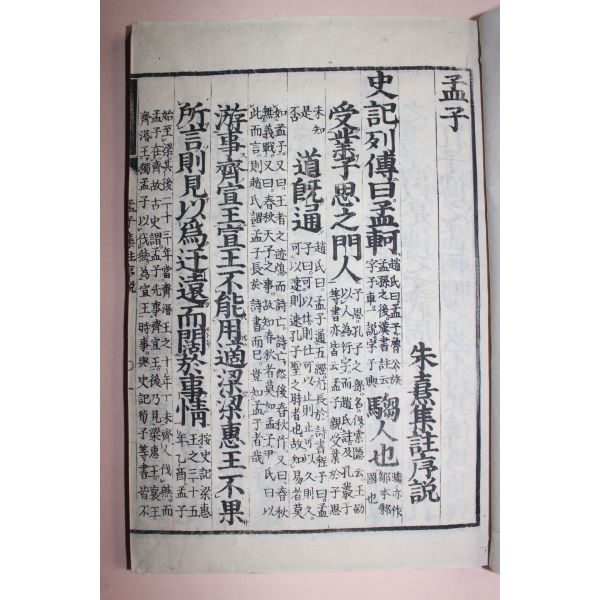 孟子
朱熹集註序説
史記列傳曰孟軻趙氏曰孟子魯公族孟孫之後漢書註云字子車一説字子輿騶人也騶亦作鄒本邾國也
受業子思之門人子思孔子之孫名伋索隱云王劭以人為衍字而趙氏註及孔叢子等書亦皆云孟子親受業於子思
未知是否道旣通趙氏曰孟子通五經尤長於詩書程子曰孟子曰可以仕則仕可以止則止可以久則久可以速則速孔子聖之時者也故知易者莫
如孟子又曰王者之迹熄而詩亡詩亡然後春秋作又曰春秋無義戰又曰春秋天子之事故知春秋者莫如孟子尹氏曰以
此而言則趙氏謂孟子長於詩書而已豈知孟子者哉
游事齊宣王宣王不能用適梁梁惠王不果
所言則見以為迂遠而闊於事情按史記梁惠王之三十五年乙酉孟子
始至梁其後二十三年當齊湣王之十年丁未齊人伐燕而孟子在齊故古史謂孟子先事齊宣王後乃見梁惠王襄王
齊湣王獨孟子以伐燕為宣王時事與史記荀子等書皆不
孟子集註序説